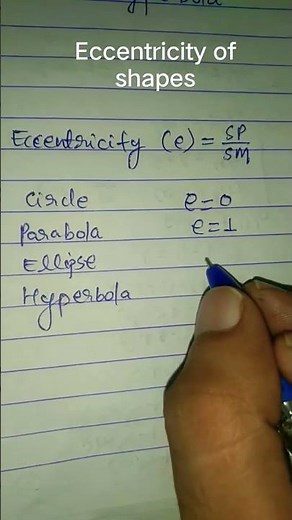 Hyperbola
Eccentricity of
shapes
Eccentricity (e) = SP/SM
Circle e=0
Parabola e=1
Ellipse
Hyperbola